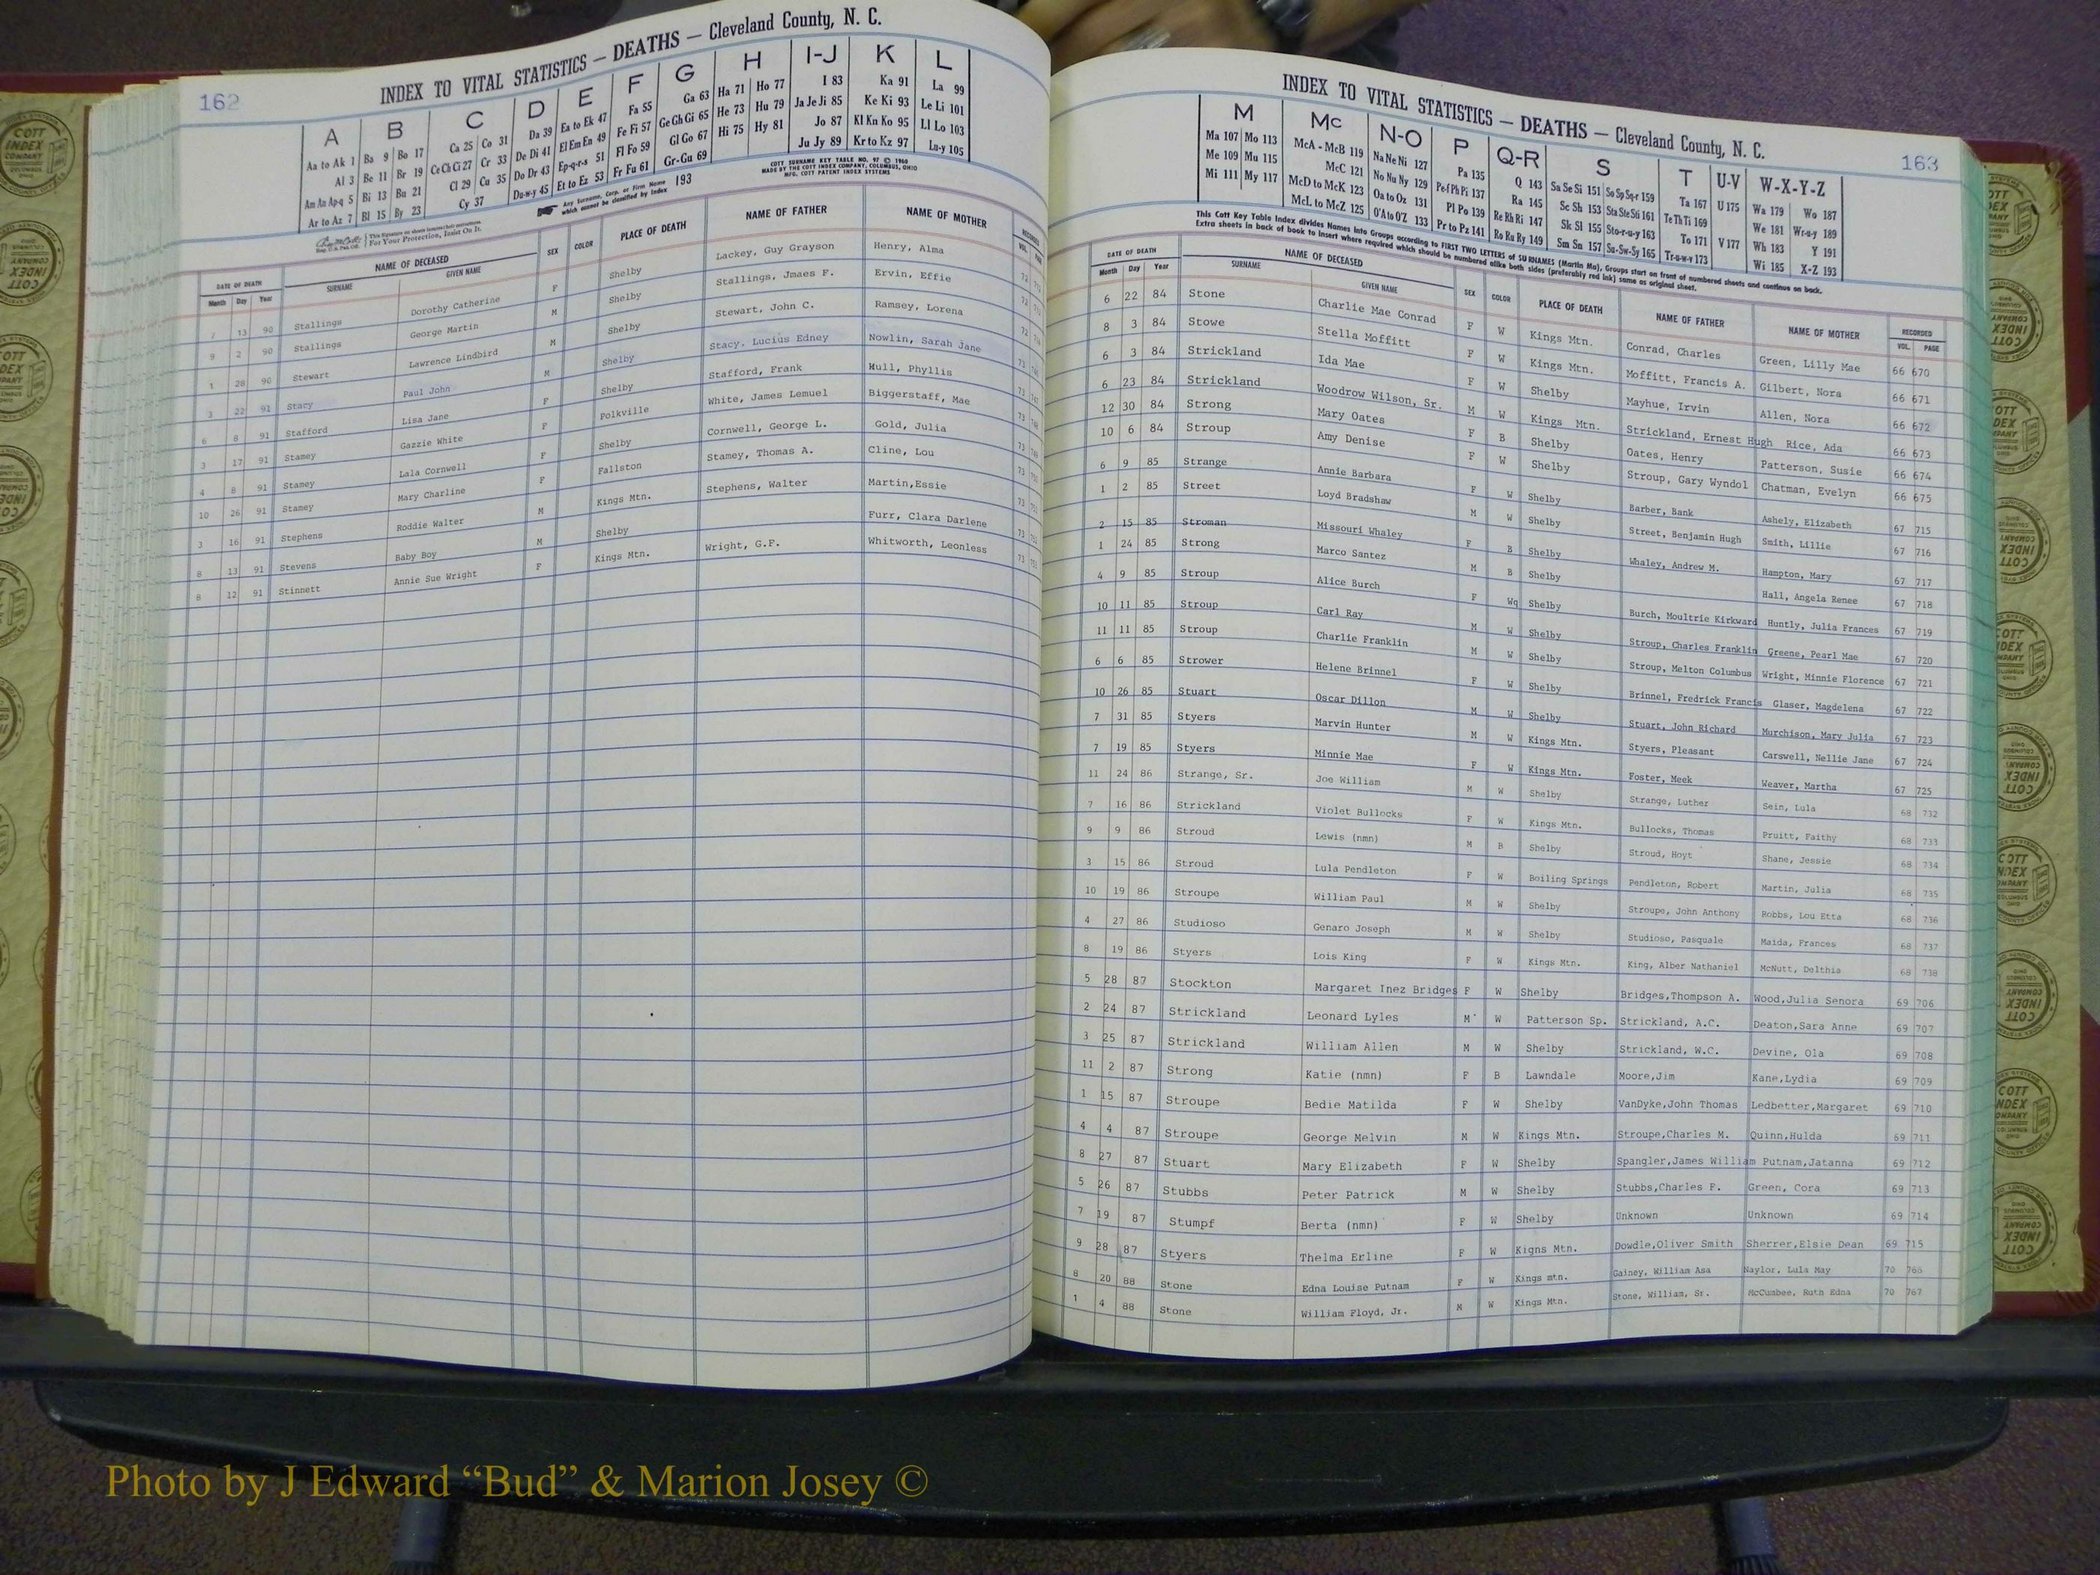 162
INDEX TO VITAL STATISTICS — DEATHS — Cleveland County, N. C.
A B C D E F G H I-J K L
Aa to Ak 1 Ba 9 Bo 17 Ca 25 Co 31 Da 39 Ea to Ek 47 Fa 55 Ga 63 Ha 71 Ho 77 I 83 Ka 91 La 99
Al 3 Be 11 Br 19 Ce Ch Ci 27 Cr 33 De Di 41 El Em En 49 Fe Fi 57 Ge Gh Gi 65 He 73 Hu 79 Ja Je Ji 85 Ke Ki 93 Le Li 101
Am An Ap-q 5 Bi 13 Bu 21 Cl 29 Cu 35 Do Dr 43 Ep-q-r-s 51 Fl Fo 59 Gl Go 67 Hi 75 Hy 81 Jo 87 Kl Kn Ko 95 Ll Lo 103
Ar to Az 7 Bl 15 By 23 Cy 37 Du-w-y 45 Et to Ez 53 Fr Fu 61 Gr-Gu 69 Ju Jy 89 Kr to Kz 97 Lu-y 105
Any Surname, Corp. or Firm Name which cannot be classified by Index 193
COTT SURNAME KEY TABLE NO. 97 © 1960
MADE BY THE COTT INDEX COMPANY, COLUMBUS, OHIO
MFG. COTT PATENT INDEX SYSTEMS
This Signature on sheets insures
For Your Protection, Insist On It.
DATE OF DEATH NAME OF DECEASED SEX COLOR PLACE OF DEATH NAME OF FATHER NAME OF MOTHER RECORDED
Month Day Year SURNAME GIVEN NAME VOL. PAGE
7 13 90 Stallings Dorothy Catherine F Shelby Lackey, Guy Grayson Henry, Alma 72
9 2 90 Stallings George Martin M Shelby Stallings, Jmaes F. Ervin, Effie 72
1 28 90 Stewart Lawrence Lindbird M Shelby Stewart, John C. Ramsey, Lorena 72
3 22 91 Stacy Paul John M Shelby Stacy, Lucius Edney Nowlin, Sarah Jane 73
6 8 91 Stafford Lisa Jane F Shelby Stafford, Frank Hull, Phyllis 73
3 17 91 Stamey Gazzie White F Polkville White, James Lemuel Biggerstaff, Mae 73
4 8 91 Stamey Lala Cornwell F Shelby Cornwell, George L. Gold, Julia 73
10 26 91 Stamey Mary Charline F Fallston Stamey, Thomas A. Cline, Lou 73
3 16 91 Stephens Roddie Walter M Kings Mtn. Stephens, Walter Martin,Essie 73
8 13 91 Stevens Baby Boy M Shelby Furr, Clara Darlene 73
8 12 91 Stinnett Annie Sue Wright F Kings Mtn. Wright, G.F. Whitworth, Leonless 73
INDEX TO VITAL STATISTICS — DEATHS — Cleveland County, N. C.
163
M Mc N-O P Q-R S T U-V W-X-Y-Z
Ma 107 Mo 113 McA - McB 119 Na Ne Ni 127 Pa 135 Q 143 Sa Se Si 151 So Sp Sq-r 159 Ta 167 U 175 Wa 179 Wo 187
Me 109 Mu 115 McC 121 No Nu Ny 129 Pe-f Ph Pi 137 Ra 145 Sc Sh 153 Sta Ste Sti 161 Te Th Ti 169 We 181 Wr-u-y 189
Mi 111 My 117 McD to McK 123 Oa to Oz 131 Pl Po 139 Re Rh Ri 147 Sk Sl 155 Sto-r-u-y 163 To 171 V 177 Wh 183 Y 191
McL to McZ 125 O'A to O'Z 133 Pr to Pz 141 Ro Ru Ry 149 Sm Sn 157 Su-Sw-Sy 165 Tr-u-w-y 173 Wi 185 X-Z 193
This Cott Key Table Index divides Names into Groups according to FIRST TWO LETTERS of SURNAMES (Martin Ma), Groups start on front of numbered sheets and continue on back.
Extra sheets in back of book to insert where required which should be numbered alike both sides (preferably red ink) same as original sheet.
DATE OF DEATH NAME OF DECEASED SEX COLOR PLACE OF DEATH NAME OF FATHER NAME OF MOTHER RECORDED
Month Day Year SURNAME GIVEN NAME VOL. PAGE
6 22 84 Stone Charlie Mae Conrad F W Kings Mtn. Conrad, Charles Green, Lilly Mae 66 670
8 3 84 Stowe Stella Moffitt F W Kings Mtn. Moffitt, Francis A. Gilbert, Nora 66 671
6 3 84 Strickland Ida Mae F W Shelby Mayhue, Irvin Allen, Nora 66 672
6 23 84 Strickland Woodrow Wilson, Sr. M W Kings Mtn. Strickland, Ernest Hugh Rice, Ada 66 673
12 30 84 Strong Mary Oates F B Shelby Oates, Henry Patterson, Susie 66 674
10 6 84 Stroup Amy Denise F W Shelby Stroup, Gary Wyndol Chatman, Evelyn 66 675
6 9 85 Strange Annie Barbara F W Shelby Barber, Bank Ashely, Elizabeth 67 715
1 2 85 Street Loyd Bradshaw M W Shelby Street, Benjamin Hugh Smith, Lillie 67 716
2 15 85 Stroman Missouri Whaley F B Shelby Whaley, Andrew M. Hampton, Mary 67 717
1 24 85 Strong Marco Santez M B Shelby Hall, Angela Renee 67 718
4 9 85 Stroup Alice Burch F Wq Shelby Burch, Moultrie Kirkward Huntly, Julia Frances 67 719
10 11 85 Stroup Carl Ray M W Shelby Stroup, Charles Franklin Greene, Pearl Mae 67 720
11 11 85 Stroup Charlie Franklin M W Shelby Stroup, Melton Columbus Wright, Minnie Florence 67 721
6 6 85 Strower Helene Brinnel F W Shelby Brinnel, Fredrick Francis Glaser, Magdelena 67 722
10 26 85 Stuart Oscar Dillon M W Shelby Stuart, John Richard Murchison, Mary Julia 67 723
7 31 85 Styers Marvin Hunter M W Kings Mtn. Styers, Pleasant Carswell, Nellie Jane 67 724
7 19 85 Styers Minnie Mae F W Kings Mtn. Foster, Meek Weaver, Martha 67 725
11 24 86 Strange, Sr. Joe William M W Shelby Strange, Luther Sein, Lula 68 732
7 16 86 Strickland Violet Bullocks F W Kings Mtn. Bullocks, Thomas Pruitt, Faithy 68 733
9 9 86 Stroud Lewis (nmn) M B Shelby Stroud, Hoyt Shane, Jessie 68 734
3 15 86 Stroud Lula Pendleton F W Boiling Springs Pendleton, Robert Martin, Julia 68 735
10 19 86 Stroupe William Paul M W Shelby Stroupe, John Anthony Robbs, Lou Etta 68 736
4 27 86 Studioso Genaro Joseph M W Shelby Studioso, Pasquale Maida, Frances 68 737
8 19 86 Styers Lois King F W Kings Mtn. King, Alber Nathaniel McNutt, Delthia 68 738
5 28 87 Stockton Margaret Inez Bridges F W Shelby Bridges,Thompson A. Wood,Julia Senora 69 706
2 24 87 Strickland Leonard Lyles M W Patterson Sp. Strickland, A.C. Deaton,Sara Anne 69 707
3 25 87 Strickland William Allen M W Shelby Strickland, W.C. Devine, Ola 69 708
11 2 87 Strong Katie (nmn) F B Lawndale Moore,Jim Kane,Lydia 69 709
1 15 87 Stroupe Bedie Matilda F W Shelby VanDyke,John Thomas Ledbetter,Margaret 69 710
4 4 87 Stroupe George Melvin M W Kings Mtn. Stroupe,Charles M. Quinn,Hulda 69 711
8 27 87 Stuart Mary Elizabeth F W Shelby Spangler,James William Putnam,Jatanna 69 712
5 26 87 Stubbs Peter Patrick M W Shelby Stubbs,Charles F. Green, Cora 69 713
7 19 87 Stumpf Berta (nmn) F W Shelby Unknown Unknown 69 714
9 28 87 Styers Thelma Erline F W Kigns Mtn. Dowdle,Oliver Smith Sherrer,Elsie Dean 69 715
8 20 88 Stone Edna Louise Putnam F W Kings mtn. Gainey, William Asa Naylor, Lula May 70 766
1 4 88 Stone William Floyd, Jr. M W Kings Mtn. Stone, William, Sr. McCumbee, Ruth Edna 70 767
Photo by J Edward “Bud” & Marion Josey ©